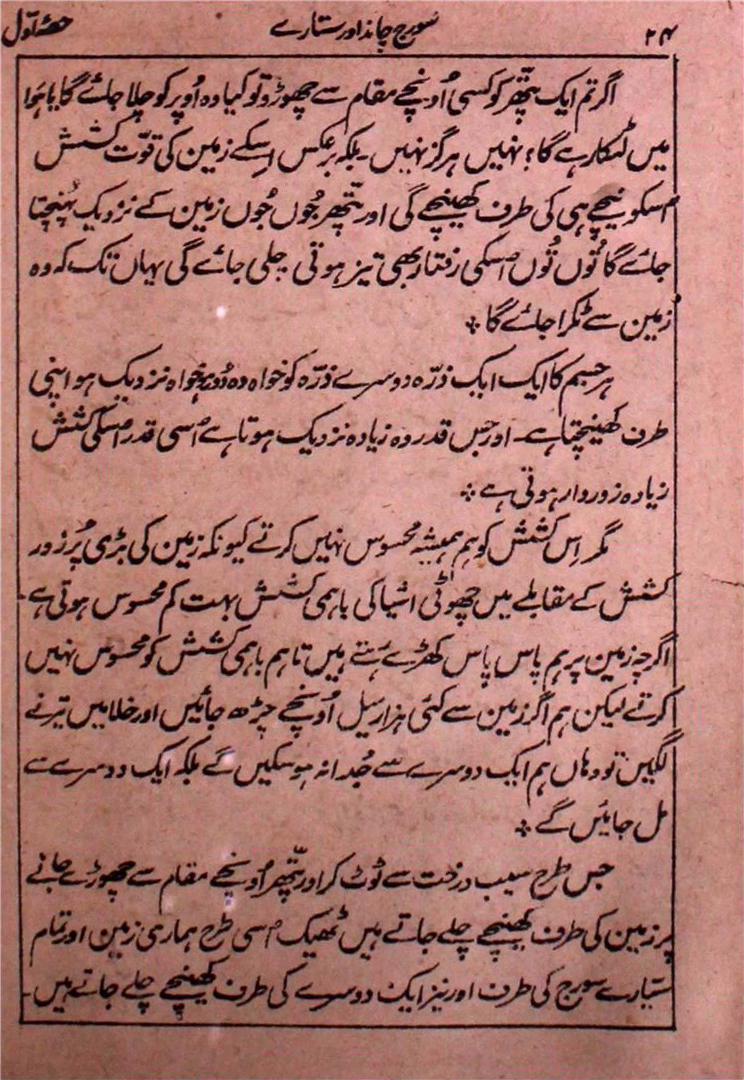 ۲۴ سورج چاند اور ستارے حصّہ اوّل
اگر تم ایک پتّھر کو کسی اُونچے مقام سے چھوڑو تو کیا وہ اُوپر کو چلا جائے گا یا ہَوا
میں لٹکا رہے گا؟ نہیں ہرگز نہیں۔ بلکہ برعکس اِسکے زمین کی قوّت کشش
اُسکو نیچے ہی کی طرف کھینچے گی اور پتّھر جُوں جُوں زمین کے نزدیک پُہنچتا
جائے گا تُوں تُوں اُسکی رفتار بھی تیز ہوتی چلی جائے گی یہاں تک کہ وہ
زمین سے ٹکرا جائے گا ⁘
ہر جسم کا ایک ایک ذرّہ دوسرے ذرّہ کو خواہ وہ دُور ہو خواہ نزدیک ہو اپنی
طرف کھینچتا ہے۔ اور جس قدر وہ زیادہ نزدیک ہوتا ہے اُسی قدر اُسکی کشش
زیادہ زوردار ہوتی ہے ⁘
مگر اِس کشش کو ہم ہمیشہ محسوس نہیں کرتے کیونکہ زمین کی بڑی پُرزور
کشش کے مقابلے میں چھوٹی اشیا کی باہمی کشش بہت کم محسوس ہوتی ہے۔
اگرچہ زمین پر ہم پاس پاس کھڑے رہتے ہیں تاہم باہمی کشش کو محسوس نہیں
کرتے لیکن ہم اگر زمین سے کئی ہزار میل اُونچے چڑھ جائیں اور خلا میں تیرنے
لگیں تو وہاں ہم ایک دوسرے سے جُدا نہ ہو سکیں گے بلکہ ایک دوسرے سے
مل جائیں گے ⁘
جس طرح سیب درخت سے ٹوٹ کر اور پتّھر اُونچے مقام سے چھوڑے جانے
پر زمین کی طرف کھینچے چلے جاتے ہیں ٹھیک اُسی طرح ہماری زمین اور تمام
سیّارے سورج کی طرف اور نیز ایک دوسرے کی طرف کھینچے چلے جاتے ہیں۔